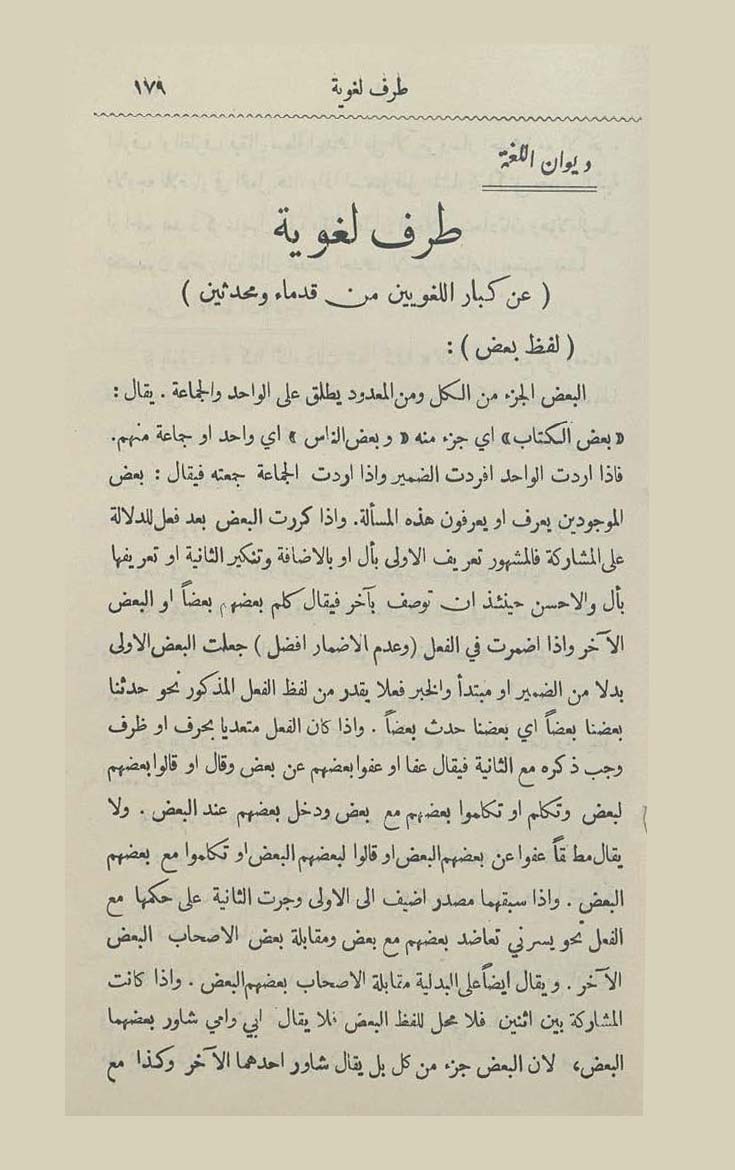 طرف لغوية ١٧٩
ديوان اللغة
طرف لغوية
( عن كبار اللغويين من قدماء ومحدثين )
( لفظ بعض ) :
البعض الجزء من الكل ومن المعدود يطلق على الواحد والجماعة . يقال :
« بعض الكتاب » اي جزء منه « وبعض الناس » اي واحد او جماعة منهم.
فاذا اردت الواحد افردت الضمير واذا اردت الجماعة جمعته فيقال : بعض
الموجودين يعرف او يعرفون هذه المسألة. واذا كررت البعض بعد فعل للدلالة
على المشاركة فالمشهور تعريف الاولى بأل او بالاضافة وتنكير الثانية او تعريفها
بأل والاحسن حينئذ ان توصف بآخر فيقال كلم بعضهم بعضاً او البعض
الآخر واذا اضمرت في الفعل (وعدم الاضمار افضل ) جعلت البعض الاولى
بدلا من الضمير او مبتدأ والخبر فعلا يقدر من لفظ الفعل المذكور نحو حدثنا
بعضنا بعضاً اي بعضنا حدث بعضاً . واذا كان الفعل متعديا بحرف او ظرف
وجب ذكره مع الثانية فيقال عفا او عفوا بعضهم عن بعض وقال او قالوا بعضهم
لبعض وتكلم او تكلموا بعضهم مع بعض ودخل بعضهم عند البعض . ولا
يقال مطلقاً عفوا عن بعضهم البعض او قالوا لبعضهم البعض او تكلموا مع بعضهم
البعض . واذا سبقهما مصدر اضيف الى الاولى وجرت الثانية على حكمها مع
الفعل نحو يسرني تعاضد بعضهم مع بعض ومقابلة بعض الاصحاب البعض
الآخر . ويقال ايضاً على البدلية مقابلة الاصحاب بعضهم البعض . واذا كانت
المشاركة بين اثنين فلا محل للفظ البعض فلا يقال ابي وامي شاور بعضهما
البعض، لان البعض جزء من كل بل يقال شاور احدهما الآخر وكذا مع